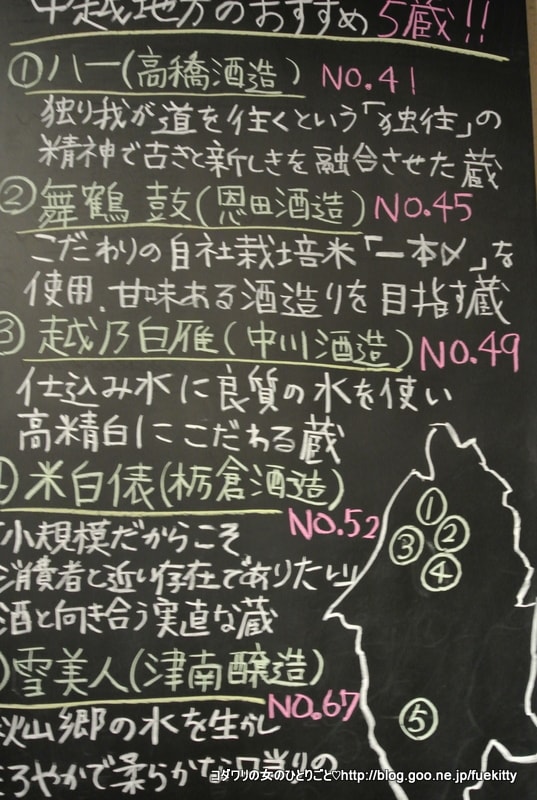 中越地方のおすすめ5蔵!!
①八一(高橋酒造) NO.41
独り我が道を往くという「独往」の
精神で古きと新しきを融合させた蔵
②舞鶴 鼓(恩田酒造) NO.45
こだわりの自社栽培米「一本〆」を
使用、甘味ある酒造りを目指す蔵
③越乃白雁(中川酒造) NO.49
仕込み水に良質の水を使い
高精白にこだわる蔵
④米白俵(栃倉酒造)
NO.52
「小規模だからこそ
消費者と近い存在でありたい」
酒と向き合う実直な蔵
雪美人(津南醸造)
NO.67
秋山郷の水を生かし
まろやかで柔らかな口当りの
①
②
③
④
⑤
コダワリの女のひとりごと♡http://blog.goo.ne.jp/fuekitty